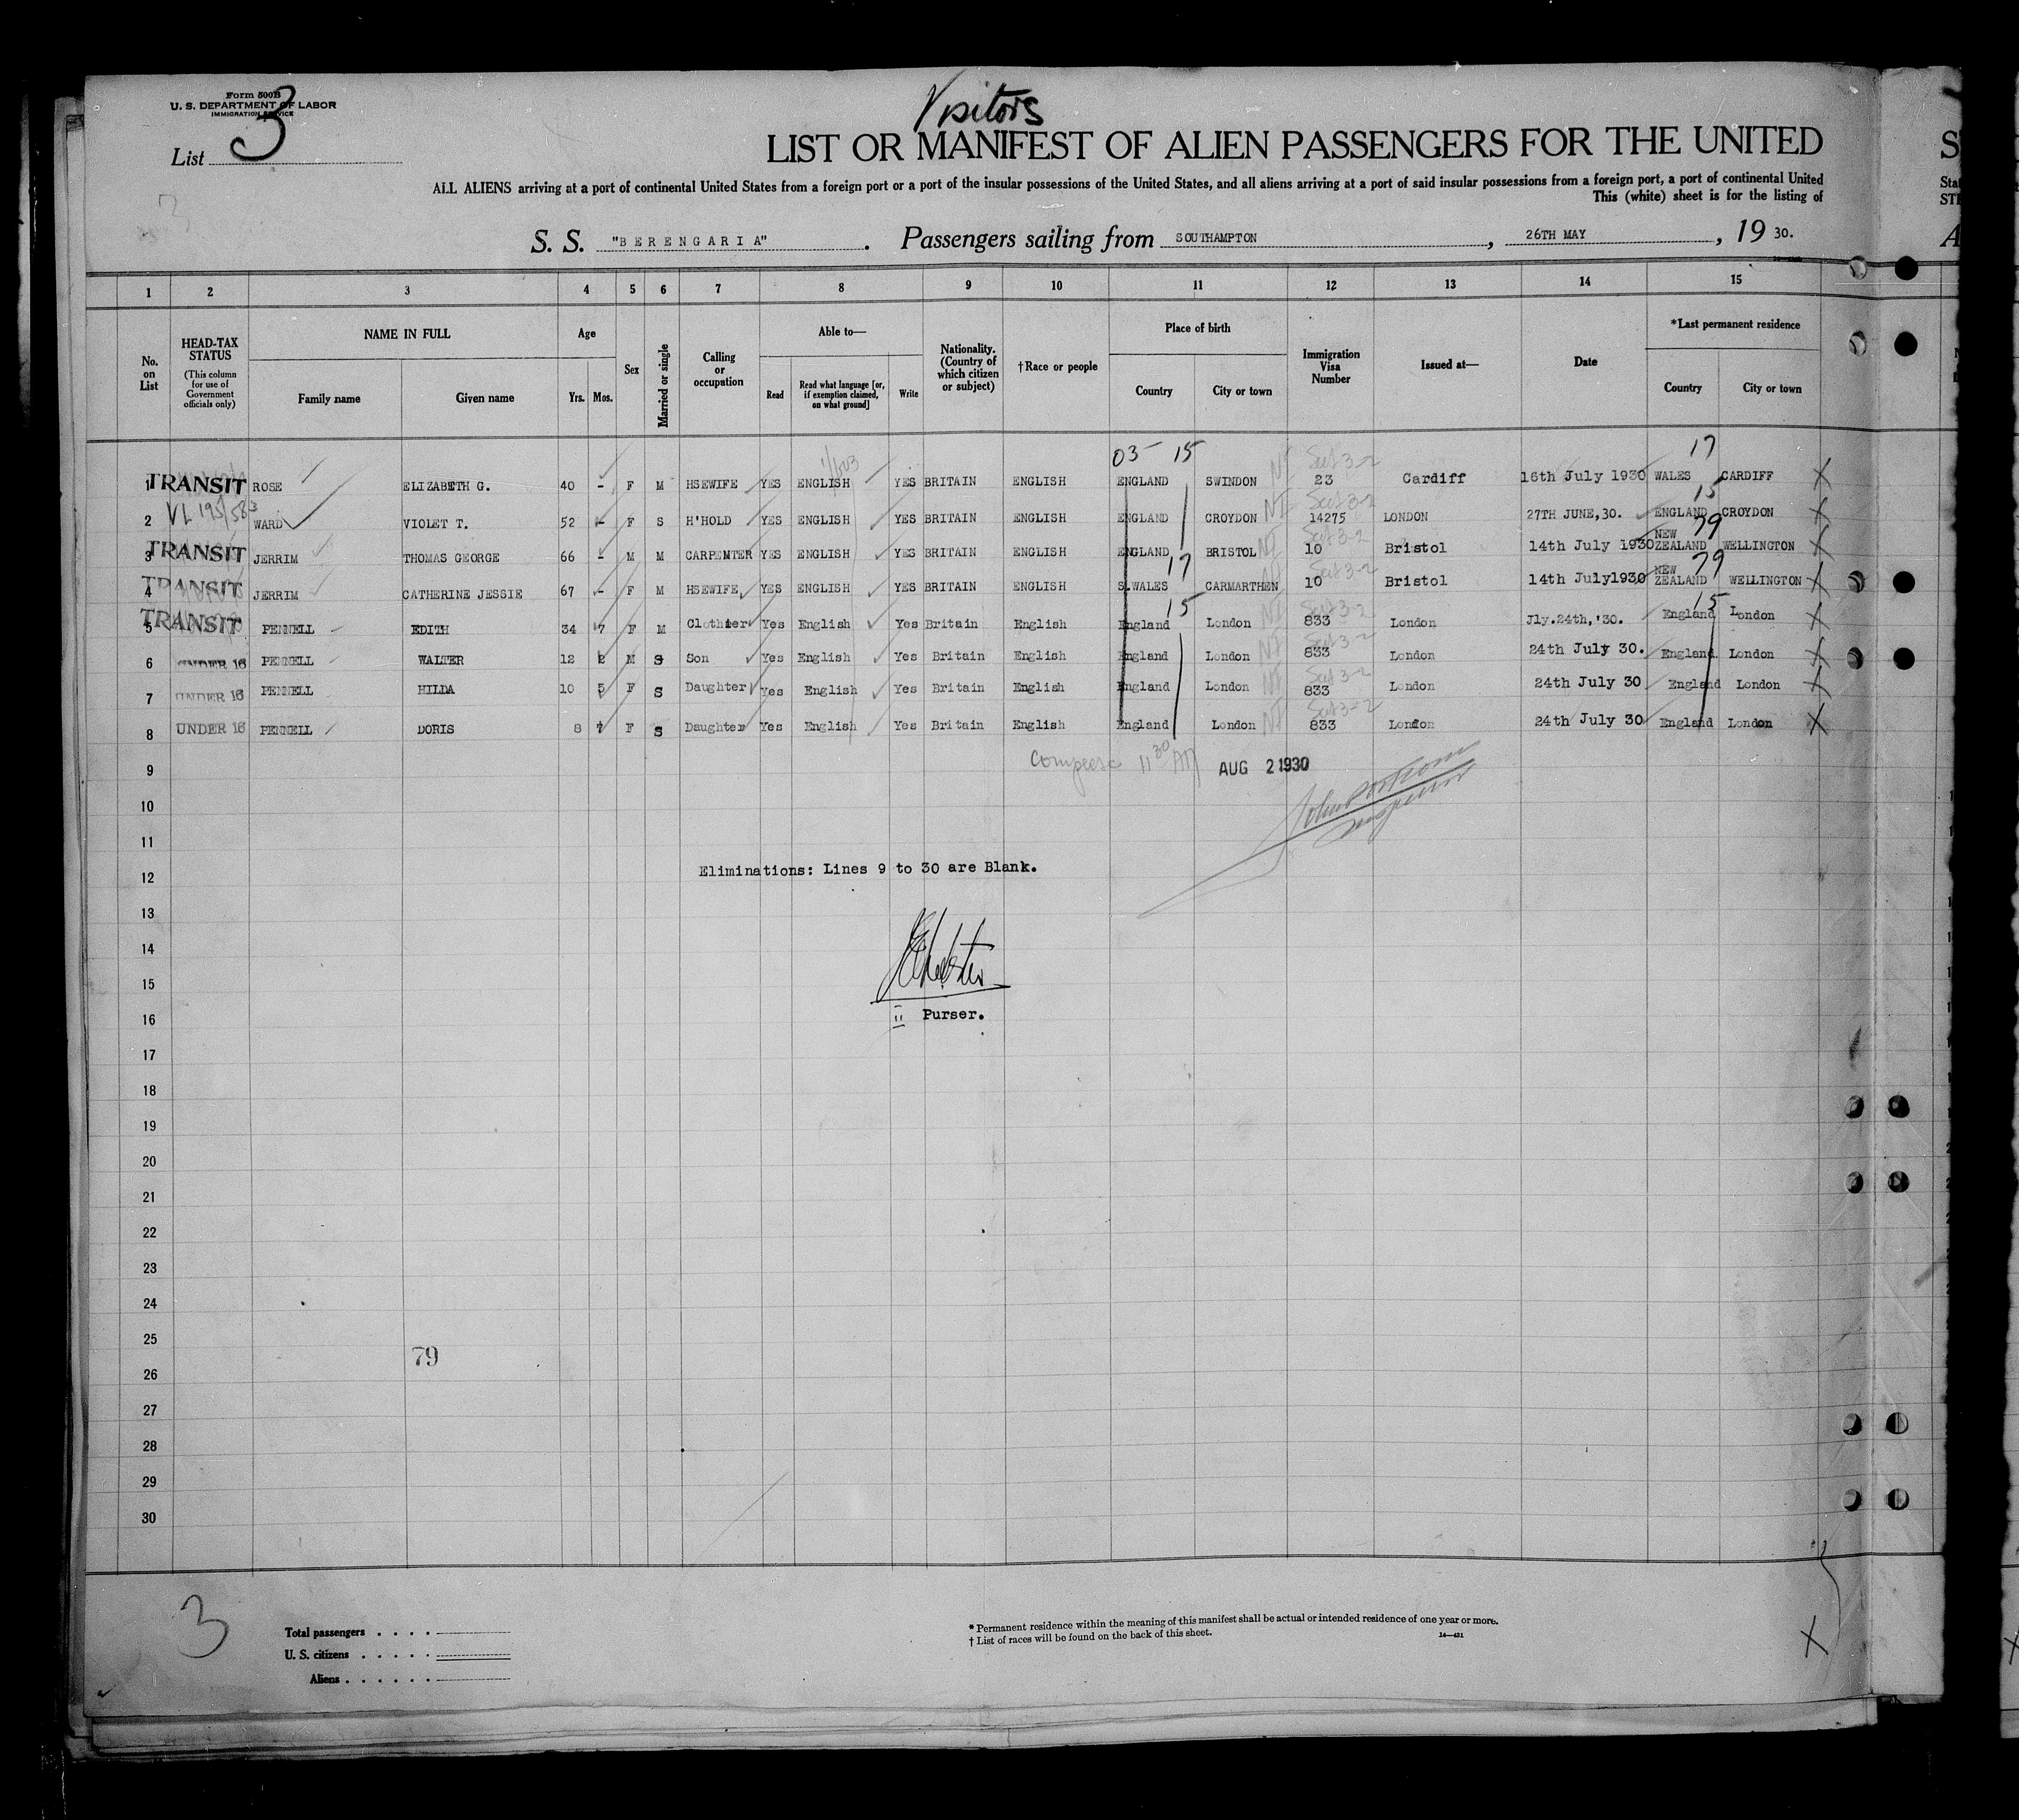 Form 500B
U. S. DEPARTMENT OF LABOR
IMMIGRATION SERVICE
List 3
Visitors
LIST OR MANIFEST OF ALIEN PASSENGERS FOR THE UNITED
ALL ALIENS arriving at a port of continental United States from a foreign port or a port of the insular possessions of the United States, and all aliens arriving at a port of said insular possessions from a foreign port, a port of continental United
This (white) sheet is for the listing of
3
S. S. "BERENGARIA". Passengers sailing from SOUTHAMPTON, 26TH MAY, 19 30.
1 2 3 4 5 6 7 8 9 10 11 12 13 14 15
No. on List
HEAD-TAX STATUS (This column for use of Government officials only)
NAME IN FULL
Family name Given name
Age
Yrs. Mos.
Sex
Married or single
Calling or occupation
Able to—
Read Read what language [or, if exemption claimed, on what ground] Write
Nationality. (Country of which citizen or subject)
†Race or people
Place of birth
Country City or town
Immigration Visa Number
Issued at—
Date
*Last permanent residence
Country City or town
03 15 17
1 TRANSIT ROSE ELIZABETH G. 40 - F M HSEWIFE YES ENGLISH YES BRITAIN ENGLISH ENGLAND SWINDON 23 Cardiff 16th July 1930 WALES CARDIFF X
15
2 VL 195/583 WARD VIOLET T. 52 - F S H'HOLD YES ENGLISH YES BRITAIN ENGLISH ENGLAND CROYDON 14275 LONDON 27TH JUNE,30. ENGLAND CROYDON X
79
3 TRANSIT JERRIM THOMAS GEORGE 66 - M M CARPENTER YES ENGLISH YES BRITAIN ENGLISH ENGLAND BRISTOL 10 Bristol 14th July 1930 NEW ZEALAND WELLINGTON X
17 79
4 TRANSIT JERRIM CATHERINE JESSIE 67 - F M HSEWIFE YES ENGLISH YES BRITAIN ENGLISH S.WALES CARMARTHEN 10 Bristol 14th July1930 NEW ZEALAND WELLINGTON X
15 15
5 TRANSIT PENNELL EDITH 34 7 F M Clothier Yes English Yes Britain English England London 833 London Jly.24th,'30. England London X
6 UNDER 16 PENNELL WALTER 12 2 M S Son Yes English Yes Britain English England London 833 London 24th July 30. England London X
7 UNDER 16 PENNELL HILDA 10 5 F S Daughter Yes English Yes Britain English England London 833 London 24th July 30 England London X
8 UNDER 16 PENNELL DORIS 8 7 F S Daughter Yes English Yes Britain English England London 833 London 24th July 30 England London X
9 11 30 AM AUG 2 1930
10
11
12 Eliminations: Lines 9 to 30 are Blank.
13
14
15
16 Purser.
17
18
19
20
21
22
23
24
25
79
26
27
28
29
30
3
Total passengers . . . .
U. S. citizens . . . . .
Aliens . . . . . .
* Permanent residence within the meaning of this manifest shall be actual or intended residence of one year or more.
† List of races will be found on the back of this sheet.
14—431
X